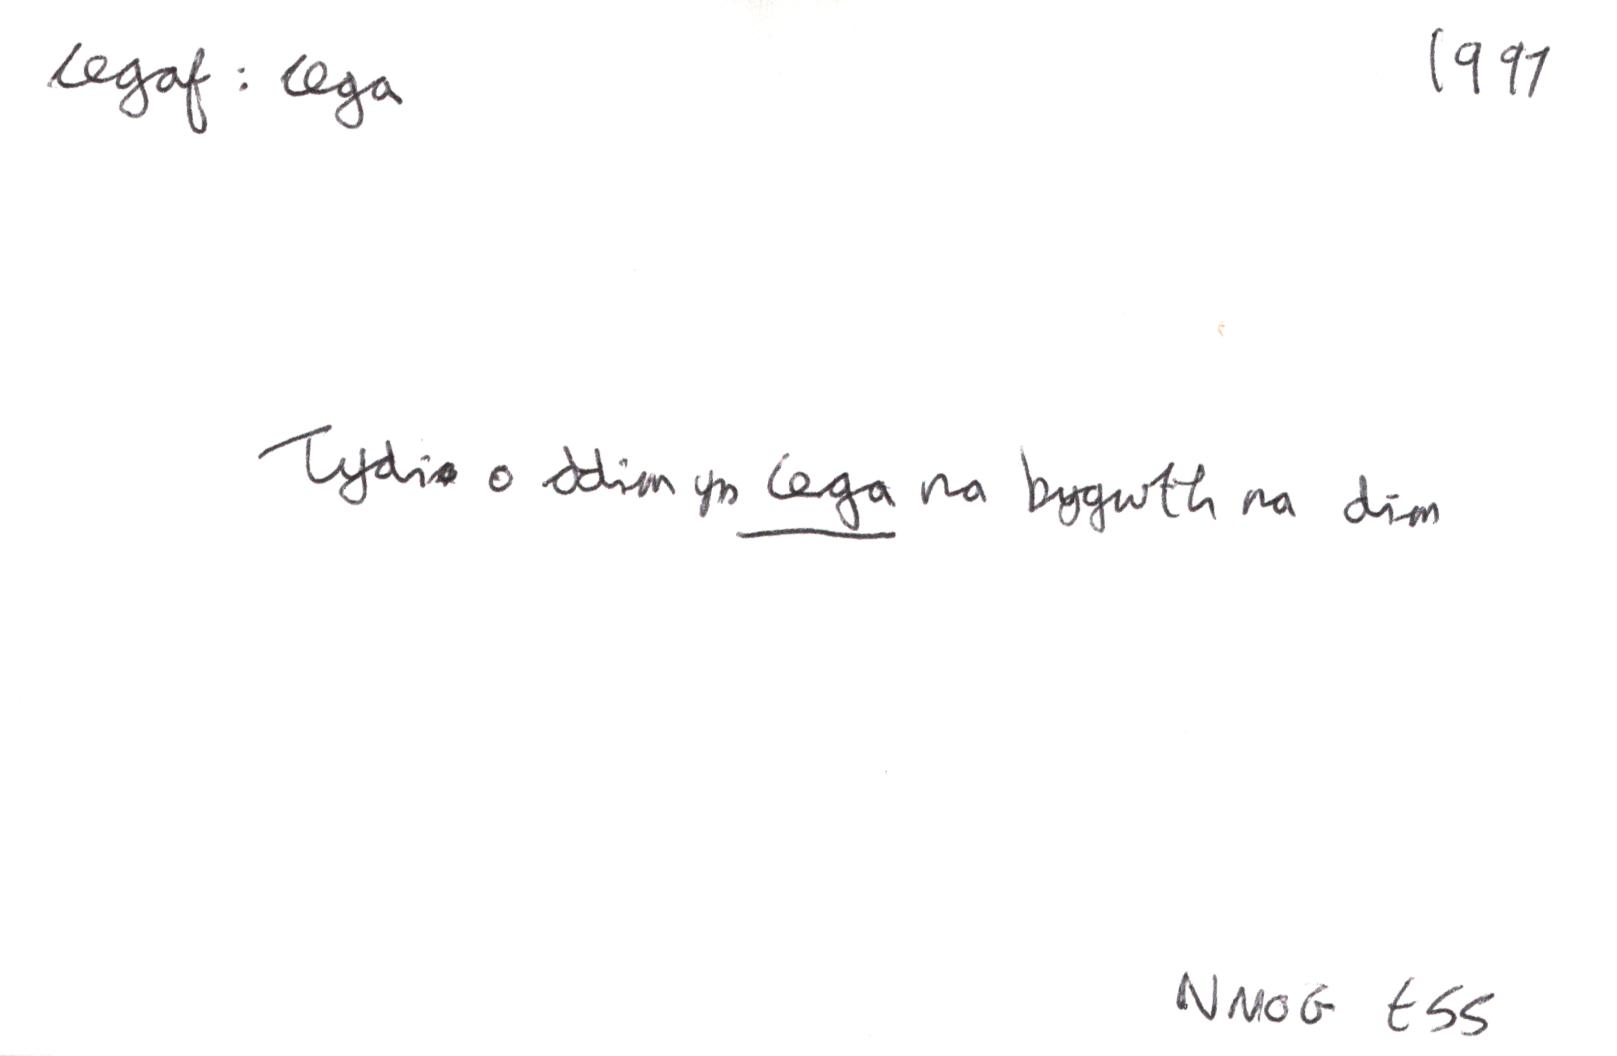 cegaf: cega 1991
Tydio o ddim yn cega na bygwth na dim
NMOG t55